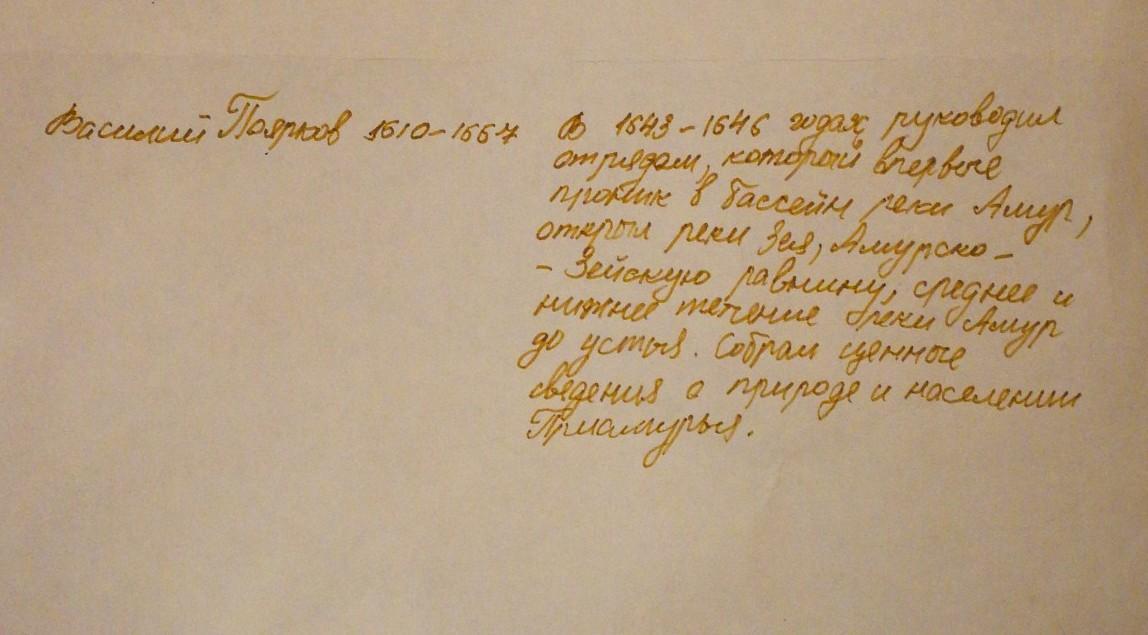 Василий Поярков 1610-1667
В 1643-1646 годах руководил
отрядом, который впервые
проник в бассейн реки Амур,
открыл реки Зея, Амурско-
- Зейскую равнину, среднее и
нижнее течение реки Амур
до устья. Собрал ценные
сведения о природе и населении
Приамурья.